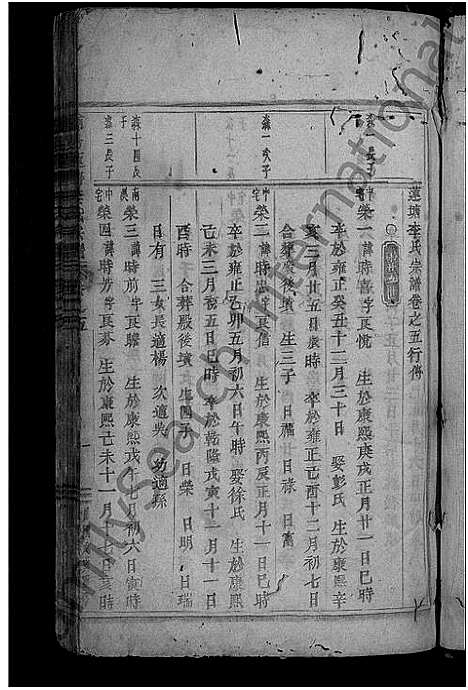 蓮塘李氏宗譜卷之五行傳
森一長子
中宅
榮一 諱時喜字良悅 生於康熙庚戌正月廿一日巳時
卒於雍正癸丑十二月三十日 娶彭氏 生於康熙辛
亥三月廿五日辰時 卒於雍正己酉十二月初七日
合葬殿後墳 生三子 日祿
森一次子
中宅
榮二 諱時 字良信 生於康熙丙辰正月十一日巳時
卒於雍正乙卯五月初六日午時 娶徐氏 生於康熙
己未三月初五日巳時 卒於乾隆戊寅十一月十一日
酉時 合葬殿後墳 生四子 日榮 日明 日瑞
日有 三女長適楊 次適吳 幼適縣
森十四長子
榮三 諱時前字良 生於康熙戊午七月初六日寅時
森三長子
中宅
榮四 諱時芳字良 生於康熙己未十一月十七日
UnitySearch International